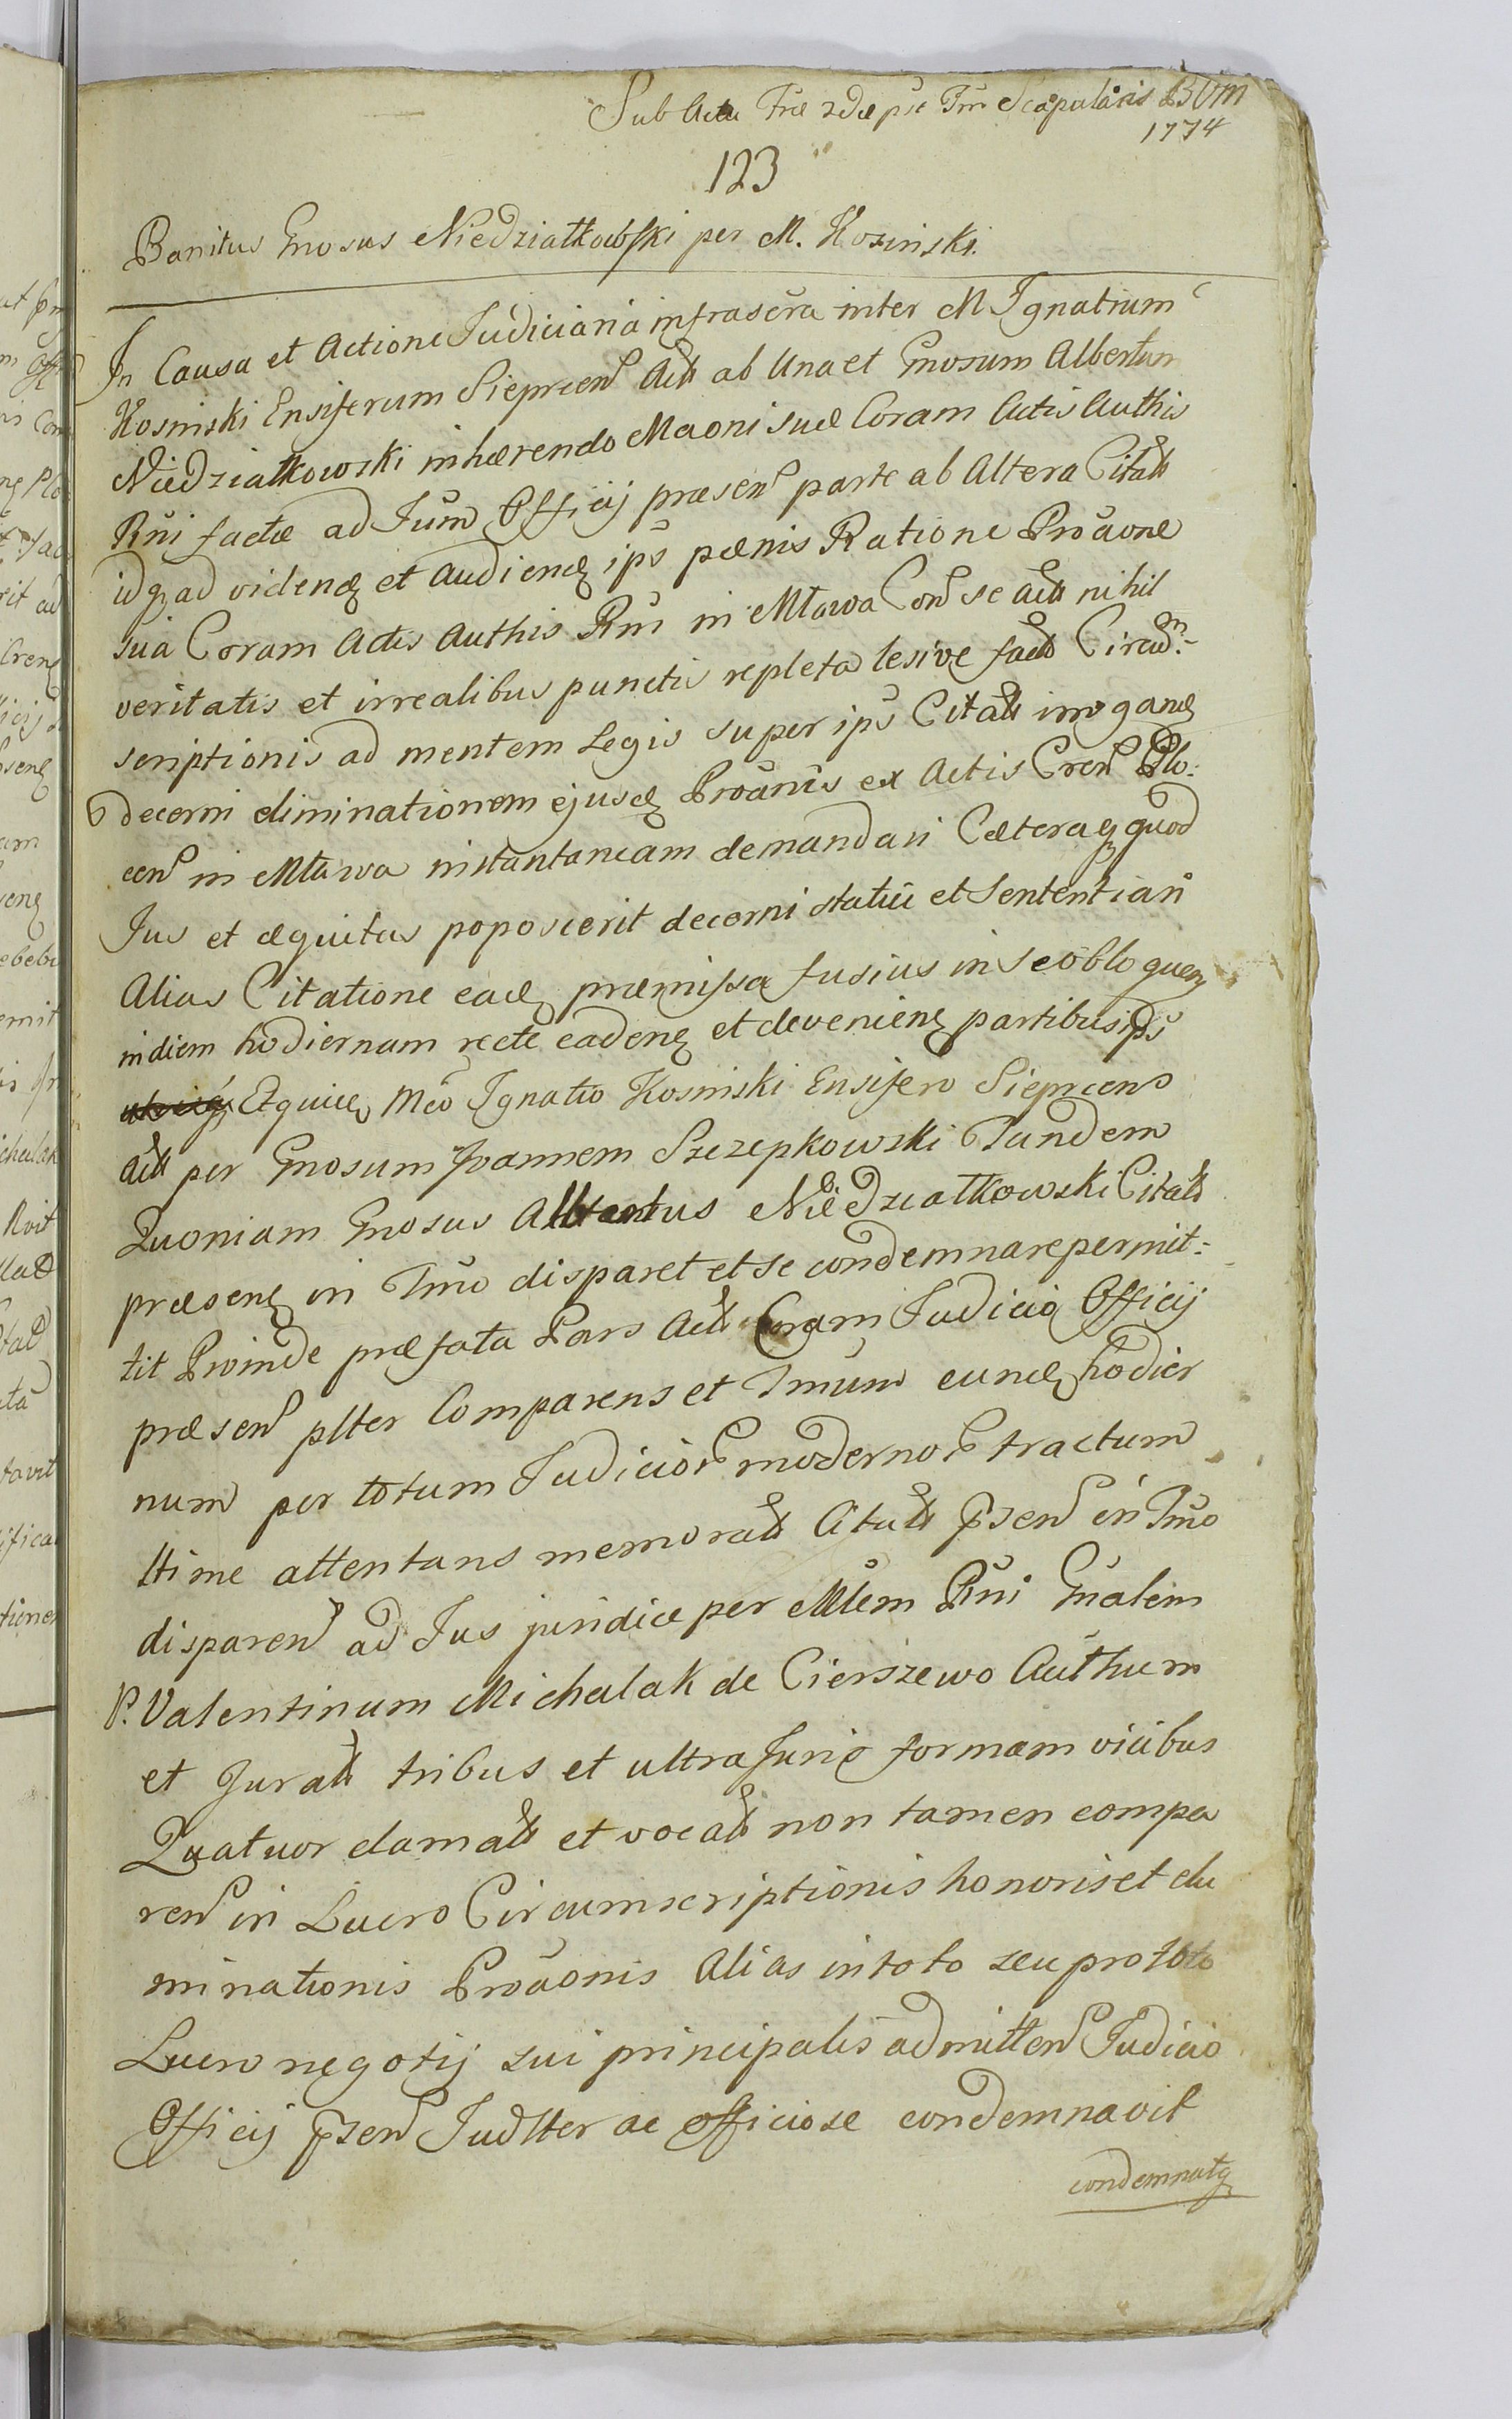 Sub Actu Fræ 2dæ pꞅt Fm Scapularis BVM
1774
123
Banitus Gnosus Niedziałkowski per M. Kosinski.
In Causa et Actione Judiciaria infrascra inter M Ignatium
Kosinski Ensiferum Sieprcen Actt ab Una et Gnosum Albertum
Niedziałkowski inhærendo Maoni suæ Coram Actis Authis
Rni factæ ad Jum Officij præsen parte ab Altera Citatt
idq ad videnđ et Audienđ ips pænis Ratione Proaone
sua Coram Actis Authis Rni in Mława Con se Actt nihil
veritatis et irrealibus punctis repleta lesive fact Circum-
scriptionis ad mentem Legis super ips Citatt irrogand
decerni eliminationem ejusd Proanis ex Actis Cren Plo:
cen in Mława instantaneam demandari Cæteraq quod
Jus et æquitas poposcerit decerni statui et Sententiari
Alias Citatione ead præmissa fusius in se obloquen
in diem hodiernam recte caden et devenien partibus ips
Et quidem Mco Ignatio Kosinski Ensifero Sieprcens
Actt per Gnosum Joannem Szczepkowski Tandem
Quoniam Gnosus Albertus Niedziałkowski Citatt
præsen in Tmo disparet et se condemnare permit:
tit Proinde præfata Pars Actt Coram Judicio Officij
præsen plter Comparens et Tmum eund hodier
num per totum Judicior modernor tractum
ltime attentans memoratt Citatt pꞅsen in Tmo
disparen ad Jus juridice per Mlem Rni Gnalem
P. Valentinum Michalak de Cierszewo Authum
et Juratt tribus et ultra Juris formam vicibus
Quatuor clamatt et vocatt non tamen compa
ren in Lucro Circumscriptionis honoris et elu
minationis Proaonis Alias in toto seu pro toto
Lucro negotij sui principalis admitten Judicio
Officij pꞅsen Judlter ac officiose condemnavit
condemnatq